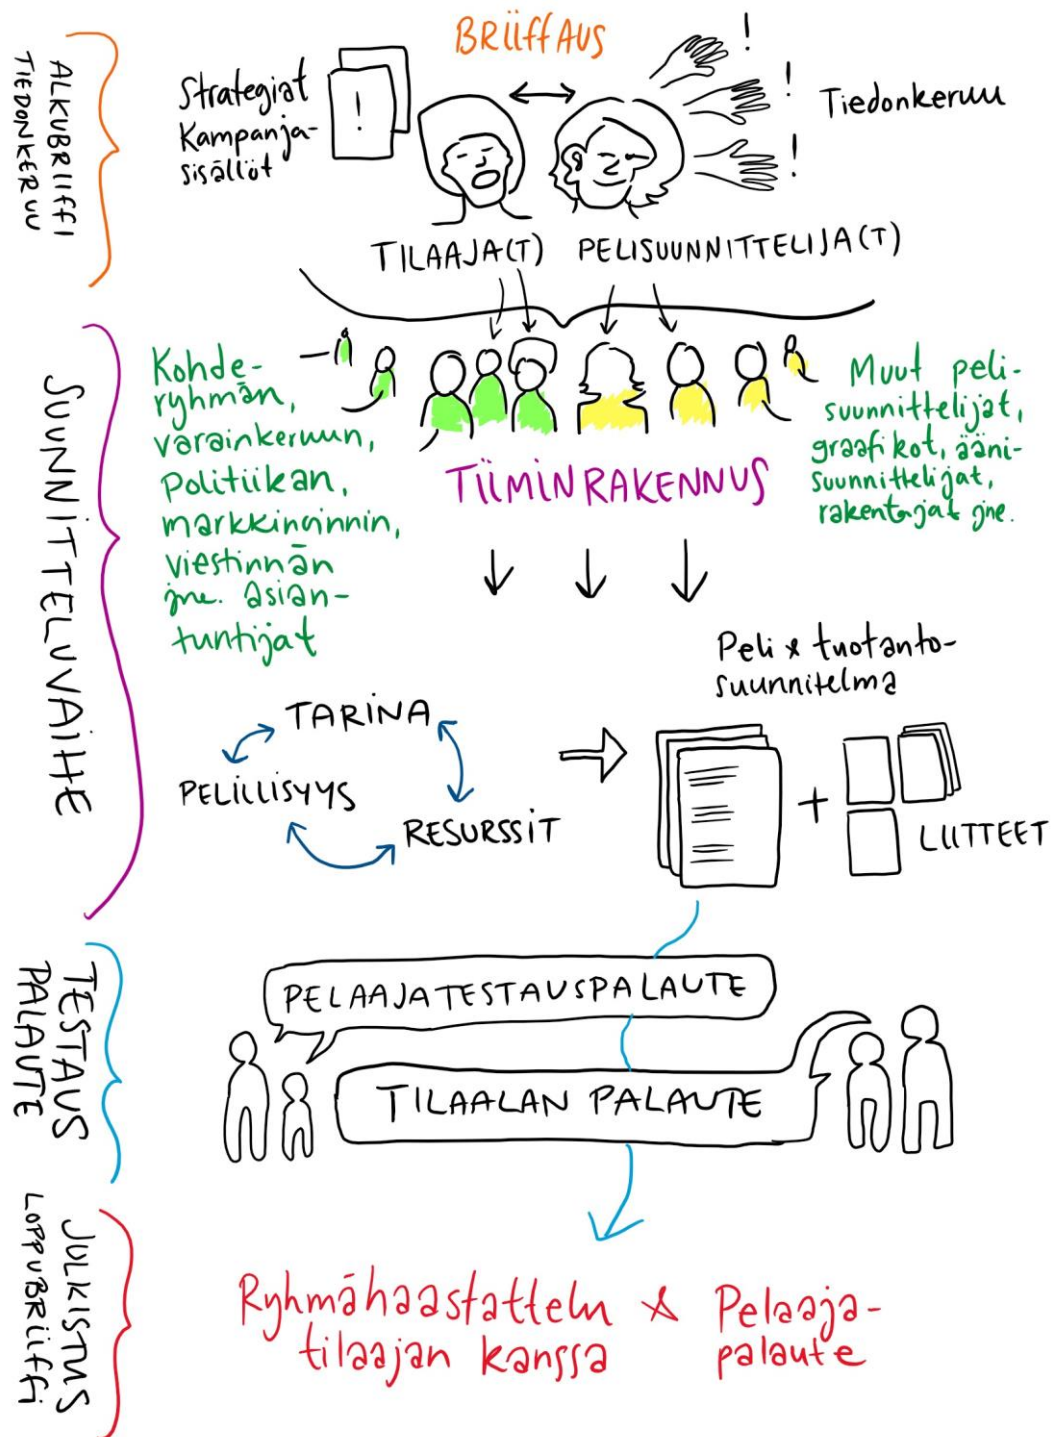 BRIIFFAUS
ALKUBRIIFFI
TIEDONKERUU
Strategiat
Kampanja-
sisällöt
!
!
!
!
Tiedonkeruu
TILAAJA(T)
PELISUUNNITTELIJA(T)
SUUNNITTELUVAIHE
Kohde-
ryhmän,
varainkeruun,
Politiikan,
markkinoinnin,
viestinnän
jne. asian-
tuntijat
Muut peli-
suunnittelijat,
graafikot, ääni-
suunnittelijat,
rakentajat jne.
TIIMIN RAKENNUS
TARINA
PELILLISYYS
RESURSSIT
Peli & tuotanto-
suunnitelma
+
LIITTEET
TESTAUS
PALAUTE
PELAAJATESTAUSPALAUTE
TILAALAN PALAUTE
JULKISTUS
LOPPUBRIIFFI
Ryhmähaastattelu &
tilaajan kanssa
Pelaaja-
palaute